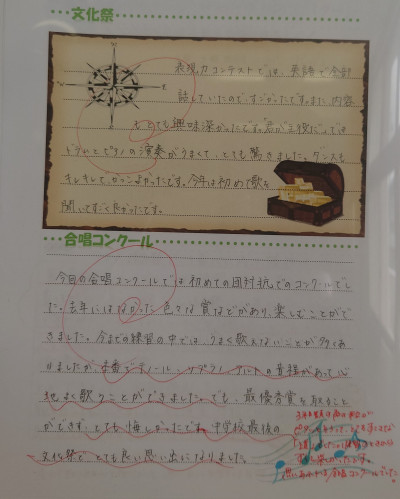 文化祭
表現力コンテストでは、英語で全部
話していたので、すごかったです。また、内容
もとても興味深かったです。君が主役だ。では
ドラムとピアノの演奏がうまくて、とても驚きました。ダンスも
キレキレで、カッコよかったです。今年は初めて歌を
聞いてすごく良かったです。
合唱コンクール
今回の合唱コンクールでは初めての団対抗でのコンクールでし
た。去年にはなかった色々な賞などがあり、楽しむことがで
きました。今までの練習の中では、うまく歌えないことが多くあ
りましたが、本番でテノール、ソプラノ、アルトの皆様があって心
地よく歌うことができました。でも、最優秀賞を取ること
ができず、とても悔しかったです。中学校最後の
文化祭で、とても良い思い出になりました。
合唱コンクールでした